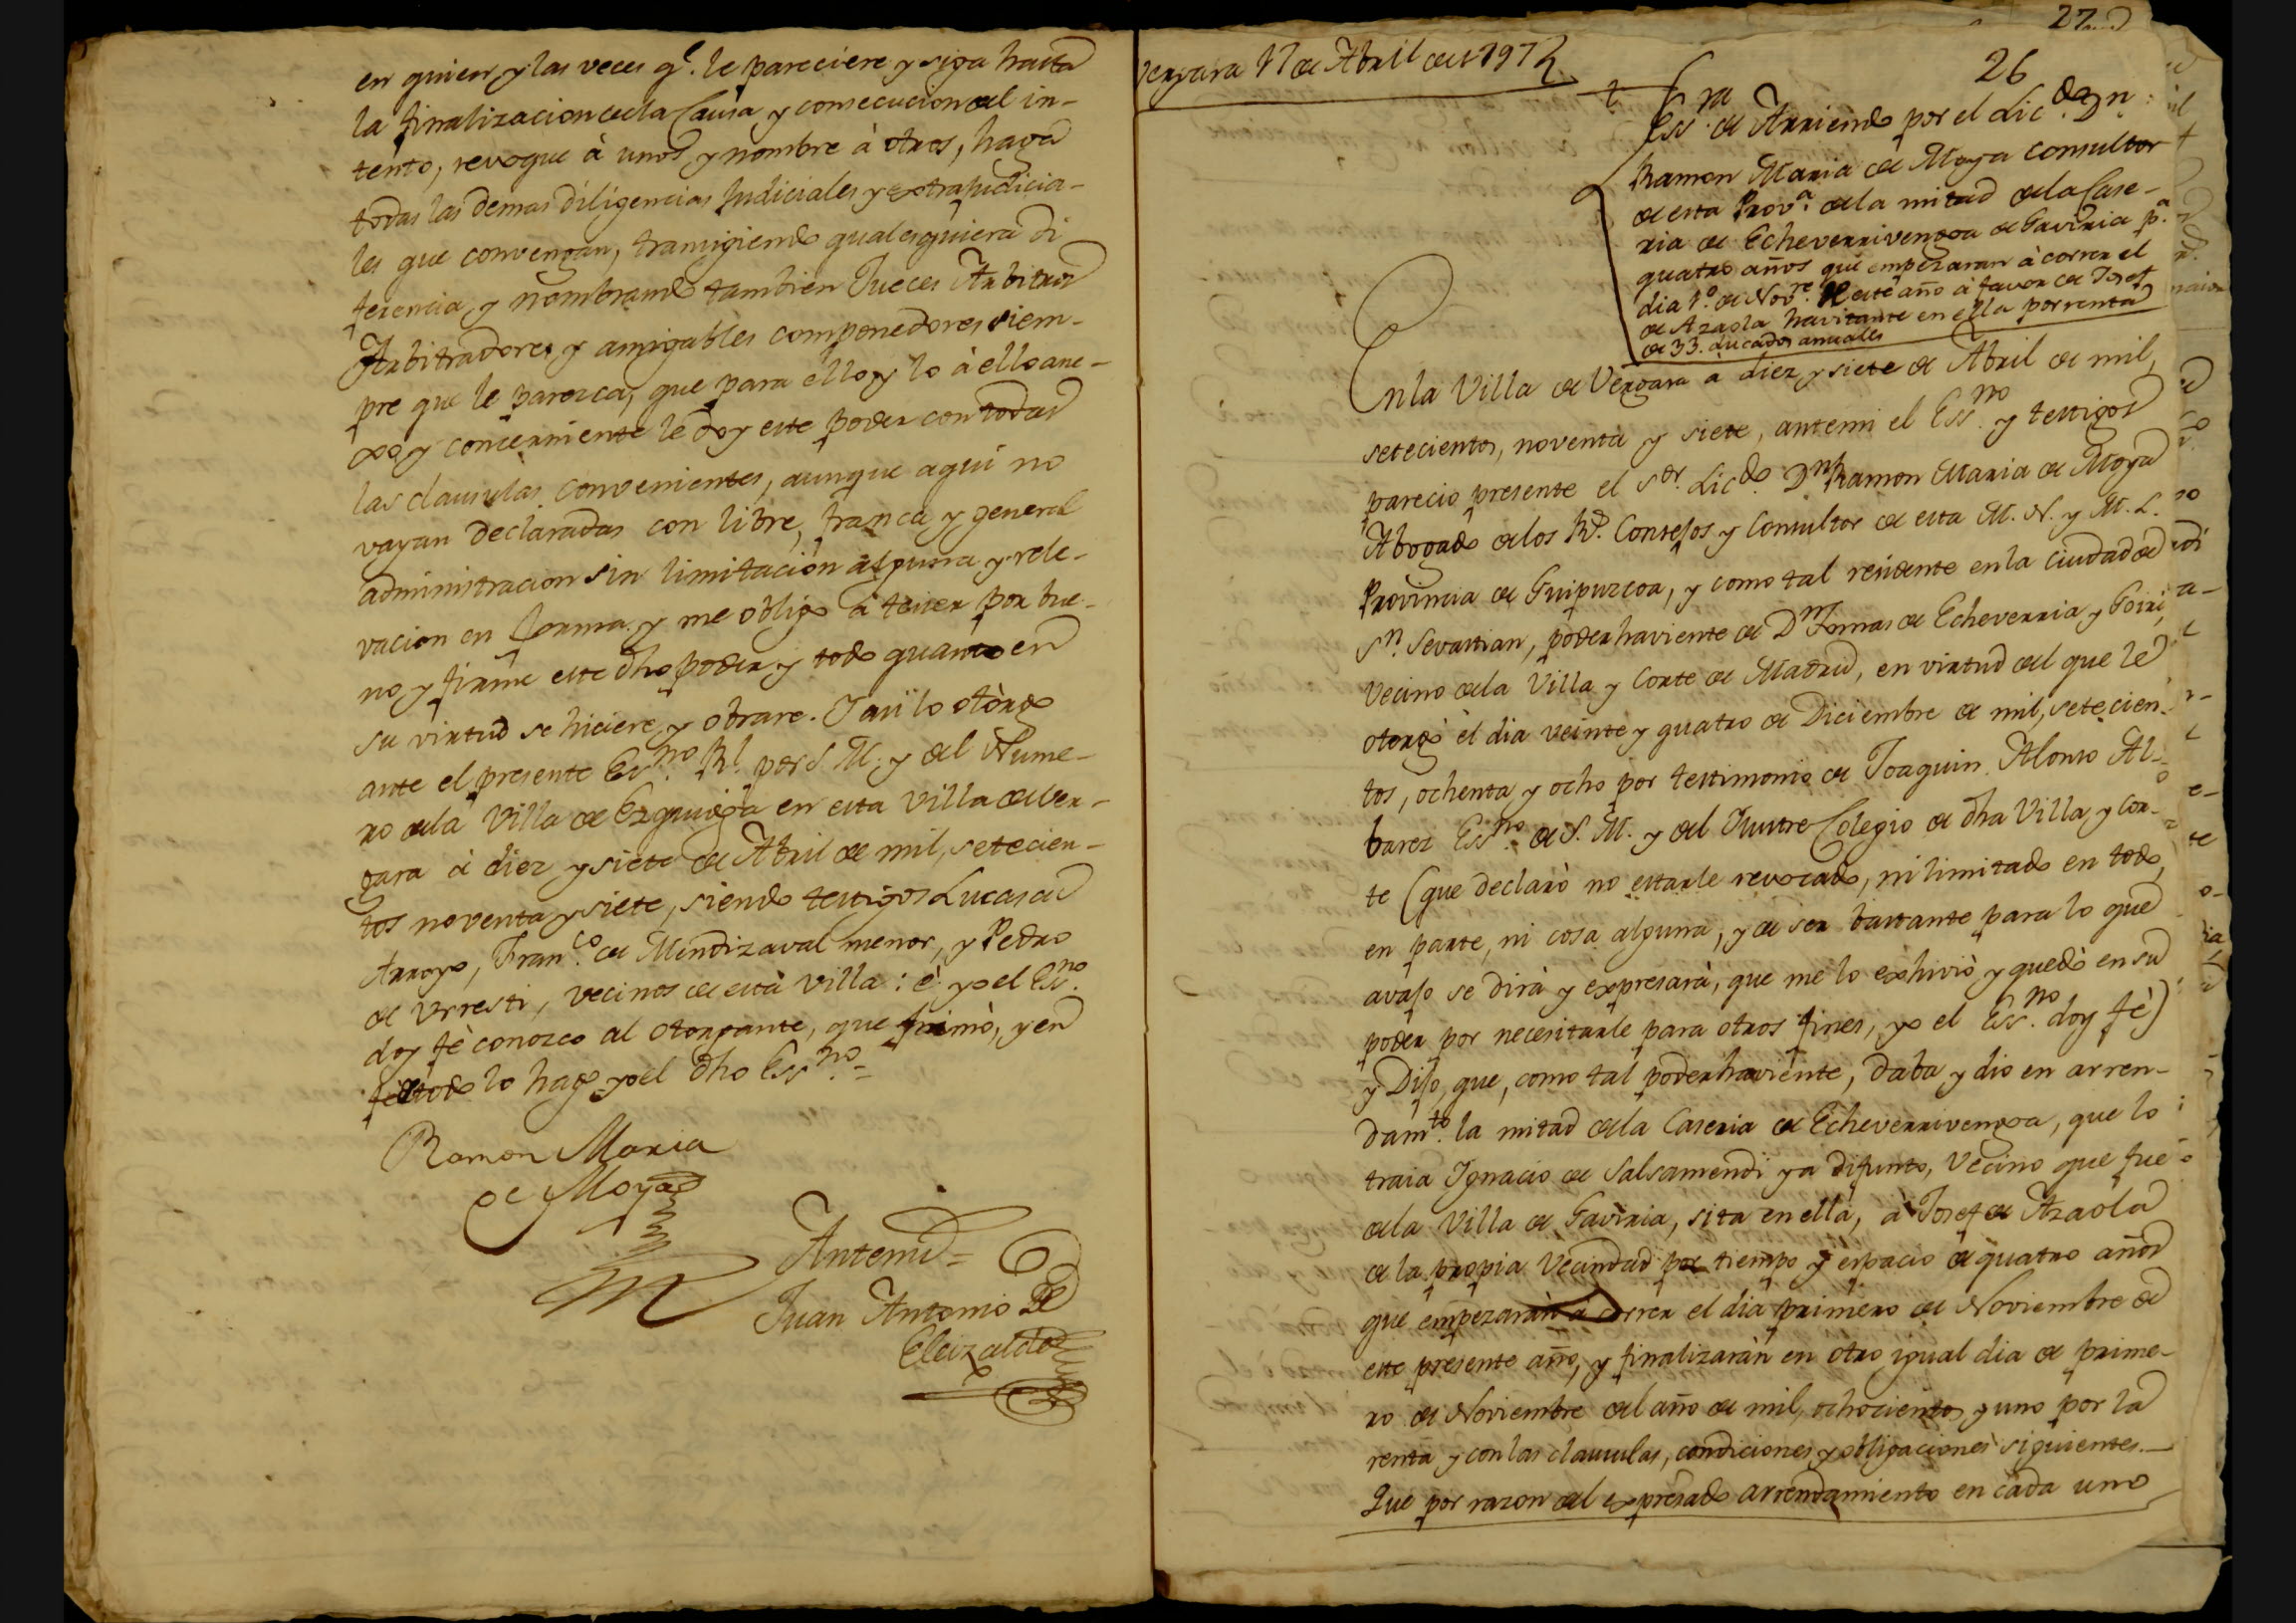 en quien y las veces q.e le pareciere y siga hasta
la finalizacion de la Causa y consecucion del in-
tento, revoque à unos y nombre à otros, haga
todas las demas diligencias Judiciales y extrajudicia-
les que convengan, transigiendo qualesquiera di
ferencia, y nombrando tambien Jueces Arbitros
Arbitradores y amigables componedores siem-
pre que le parezca, que para ello y lo à ello ane-
xo y concerniente le doy este poder con todas
las clausulas convenientes, aunque aqui no
vayan declaradas con libre, franca y general
administracion sin limitación alguna y rele-
vacion en forma y me obligo à tener por bue-
no, y firme este dho poder y todo quanto en
su virtud se hiciere y obrare. I asi lo otòrgo
ante el presente Ess.no R.l por S. M. y del Nume-
ro de la Villa de Ezquioga en esta Villa de Ver-
gara à diez y siete de Abril de mil, setecien-
tos noventa y siete, siendo testigos Lucas de
Arroyo, Fran.co de Mendizaval menor, y Pedro
de Urresti, vecinos de esta villa: è yo el Ess.no
doy fè conozco al otorgante, que firmò, y en
fe de todo lo hago yo el dho Ess.no =
Ramon Maria
de Moya
Antemi =
Juan Antonio de
Eleizalde
27
Vergara 17 de Abril de 1797
26
Ess.ra de Arriendo por el Lic.do D.n
Ramon Maria de Moya Consultor
de esta Prov.a de la mitad de la Case-
ria de Echeverrivengoa de Gaviria p.a
quatro años que empezaran à correr el
dia 1.o de Nov.re de este año à favor de Josef
de Azaola havitante en ella por renta
de 33. ducados annuales
En la Villa de Vergara à diez y siete de Abril de mil,
setecientos, noventa y siete, antemi el Ess.no y testigos
parecio presente el s.or Lic.do D.n Ramon Maria de Moya
Abogado de los R.s Consejos y Consultor de esta M. N. y M. L.
Provincia de Guipuzcoa, y como tal residente en la Ciudad de
S.n Sevastian, poderhaviente de D.n Tomas de Echeverria y Goiri,
Vecino de la Villa y Corte de Madrid, en virtud del que le
otorgò el dia veinte y quatro de Diciembre de mil, setecien-
tos, ochenta y ocho por testimonio de Joaquin Alonso Al-
barez Ess.no de S. M. y del Ilustre Colegio de dha Villa, y Cor-
te (que declarò no estarle revocado, ni limitado en todo,
en parte, ni cosa alguna, y de ser bastante para lo que
avajo se dirà y expresarà, que me lo exhiviò y quedò en su
poder por necesitarle para otros fines, yo el Ess.no doy fè)
y Dijo, que, como tal poderhaviente, daba y dio en arren-
dam.to la mitad de la Caseria de Echeverrivengoa, que lo
traia Ignacio de Salsamendi ya difunto, Vecino que fue
de la Villa de Gaviria, sita en ella, à Josef de Azaola
de la propia Vecindad por tiempo y espacio de quatro años
que empezaràn à correr el dia primero de Noviembre de
este presente año, y finalizaràn en otro igual dia de prime-
ro de Noviembre del año de mil, ochocientos y uno por la
renta y con las clausulas, condiciones y obligaciones siguientes.
Que por razon del expresado arrendamiento en cada uno